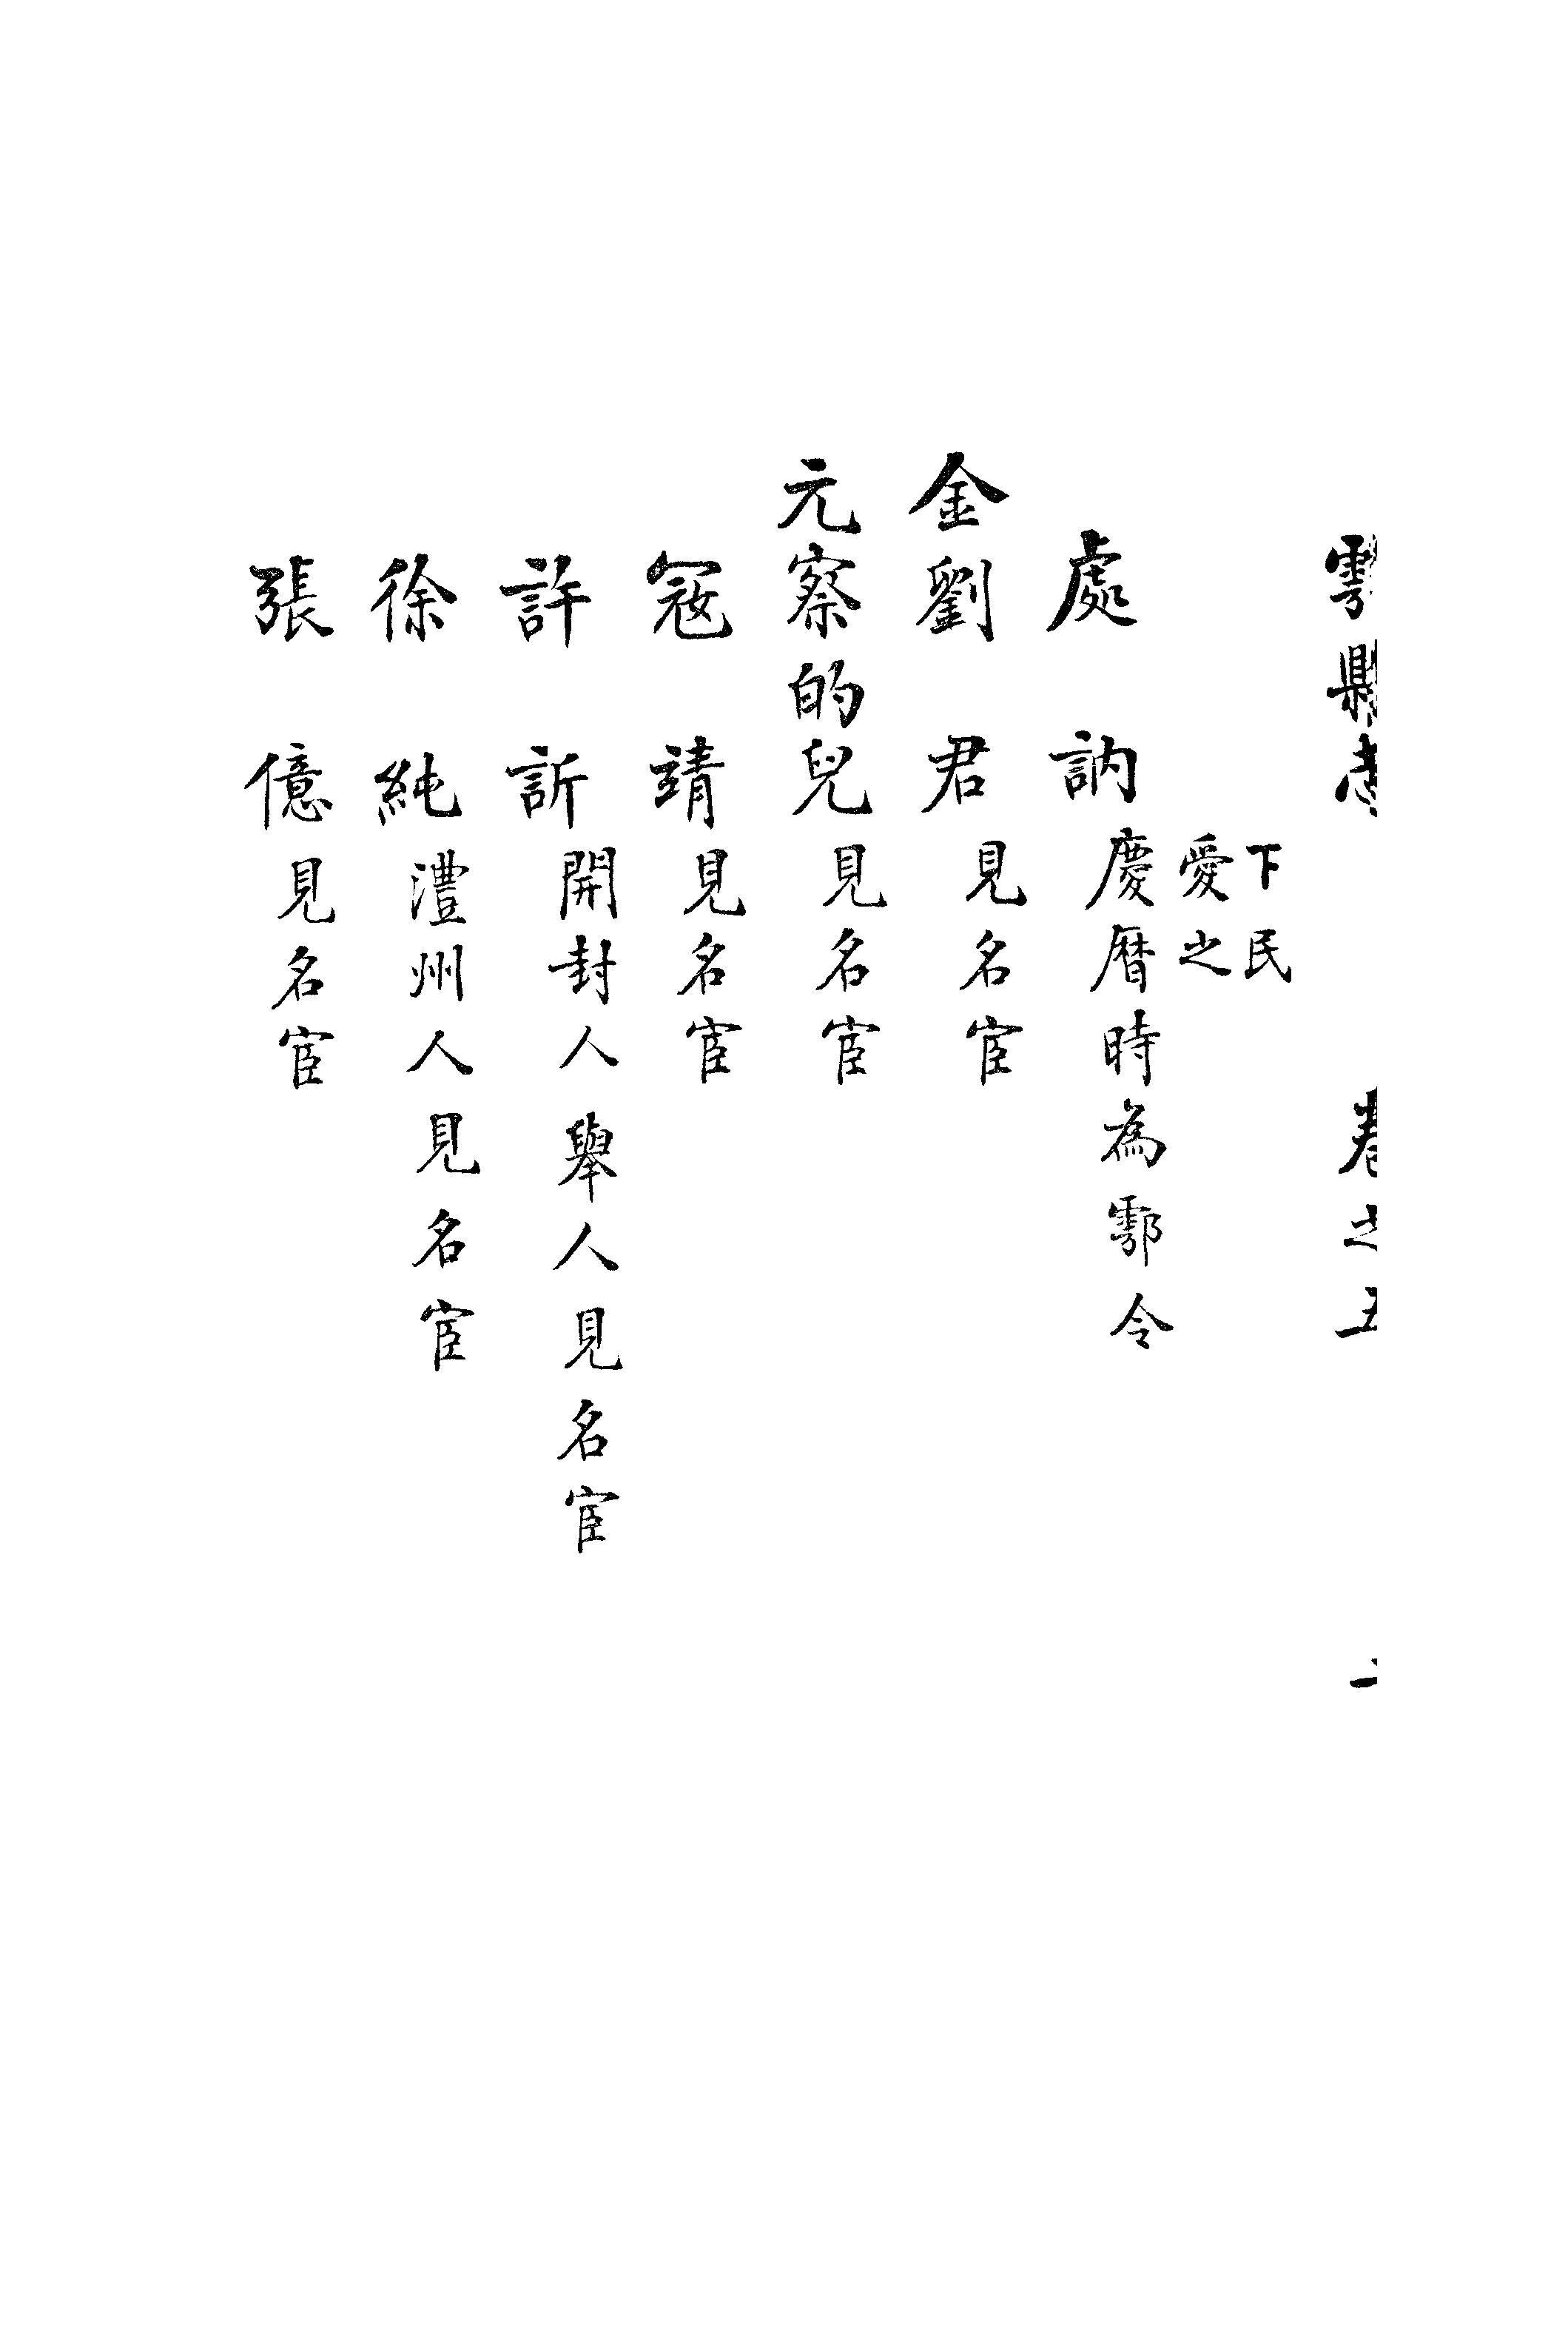 鄠縣志 卷之五
下民
愛之
處 訥 慶曆時為鄠令
金劉 君 見名宦
元察的兒 見名宦
寇 靖 見名宦
許 訢 開封人舉人見名宦
徐 純 澧州人見名宦
張 億 見名宦